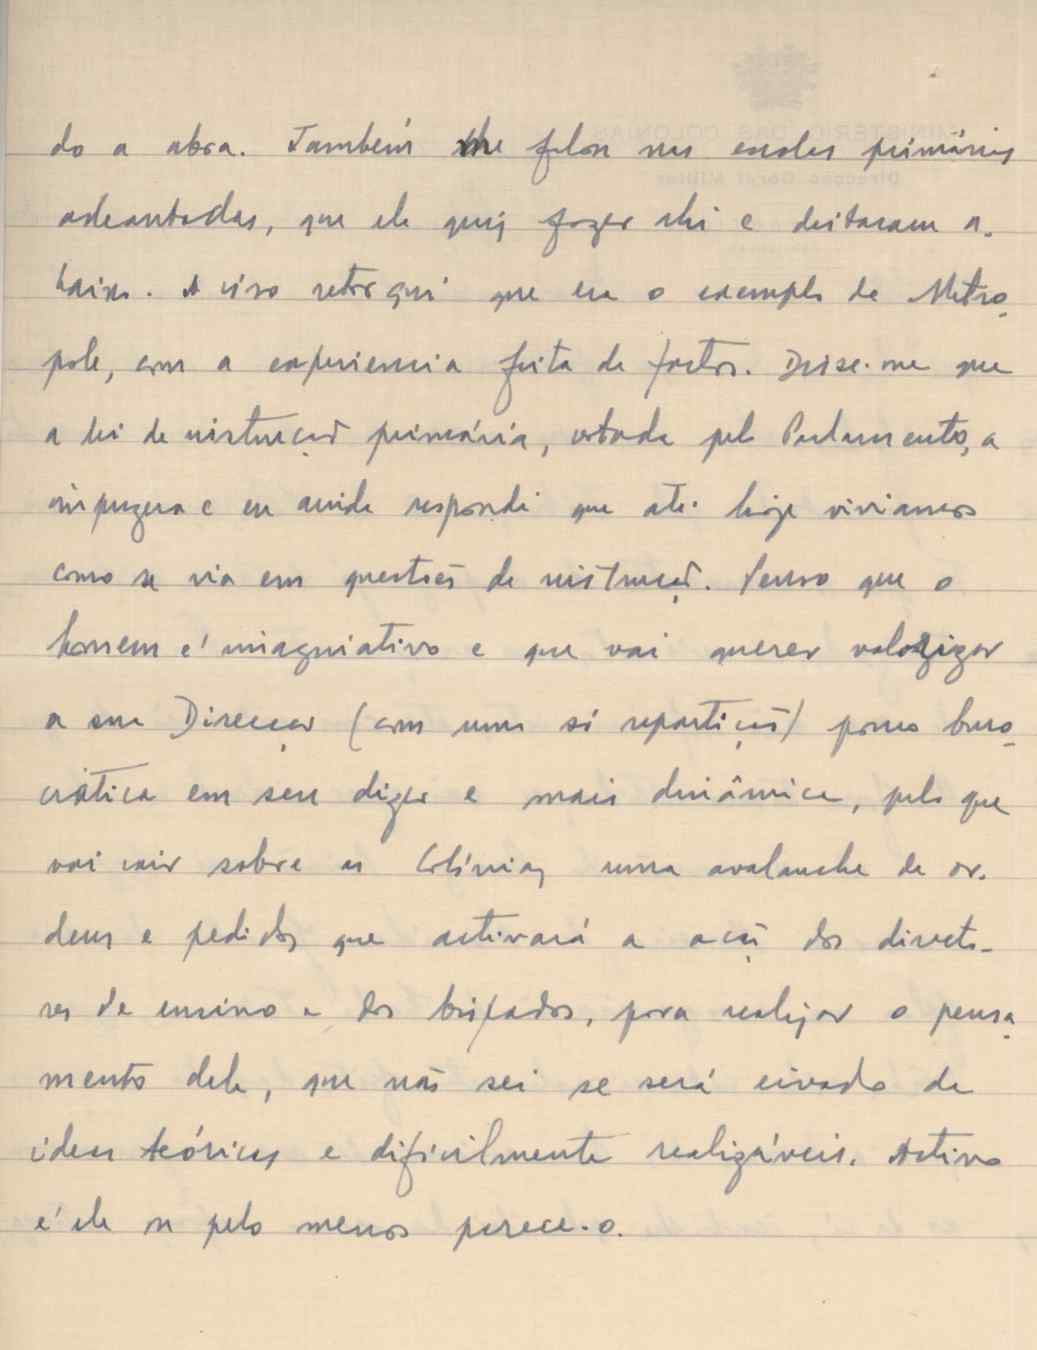 do a obra. Também me falou nas escolas primárias
adeantadas, que ele quiz fazer ahi e deitaram a-
baixo. A isso retorqui que era o exemplo da Metro-
pole, com a experiencia feita de factos. Disse-me que
a lei de instrução primária, votada pelo Parlamento, a
impuzera e eu ainda respondi que até hoje viviamos
como se via em questões de instrução. Penso que o
homem é imaginativo e que vai querer valorizar
a sua Direcção (com uma só repartição) pouco buro-
crática em seu dizer e mais dinâmica, pelo que
vai cair sobre as Colónias uma avalanche de or-
dens e pedidos que activará a acção dos directo-
res de ensino e dos
para realizar o pensa-
mento dele, que não sei se será eivado de
ideas teóricas e dificilmente realizáveis. Activo
é ele ou pelo menos parece-o.
MINISTÉRIO DAS COLÓNIAS
Direcção Geral Militar